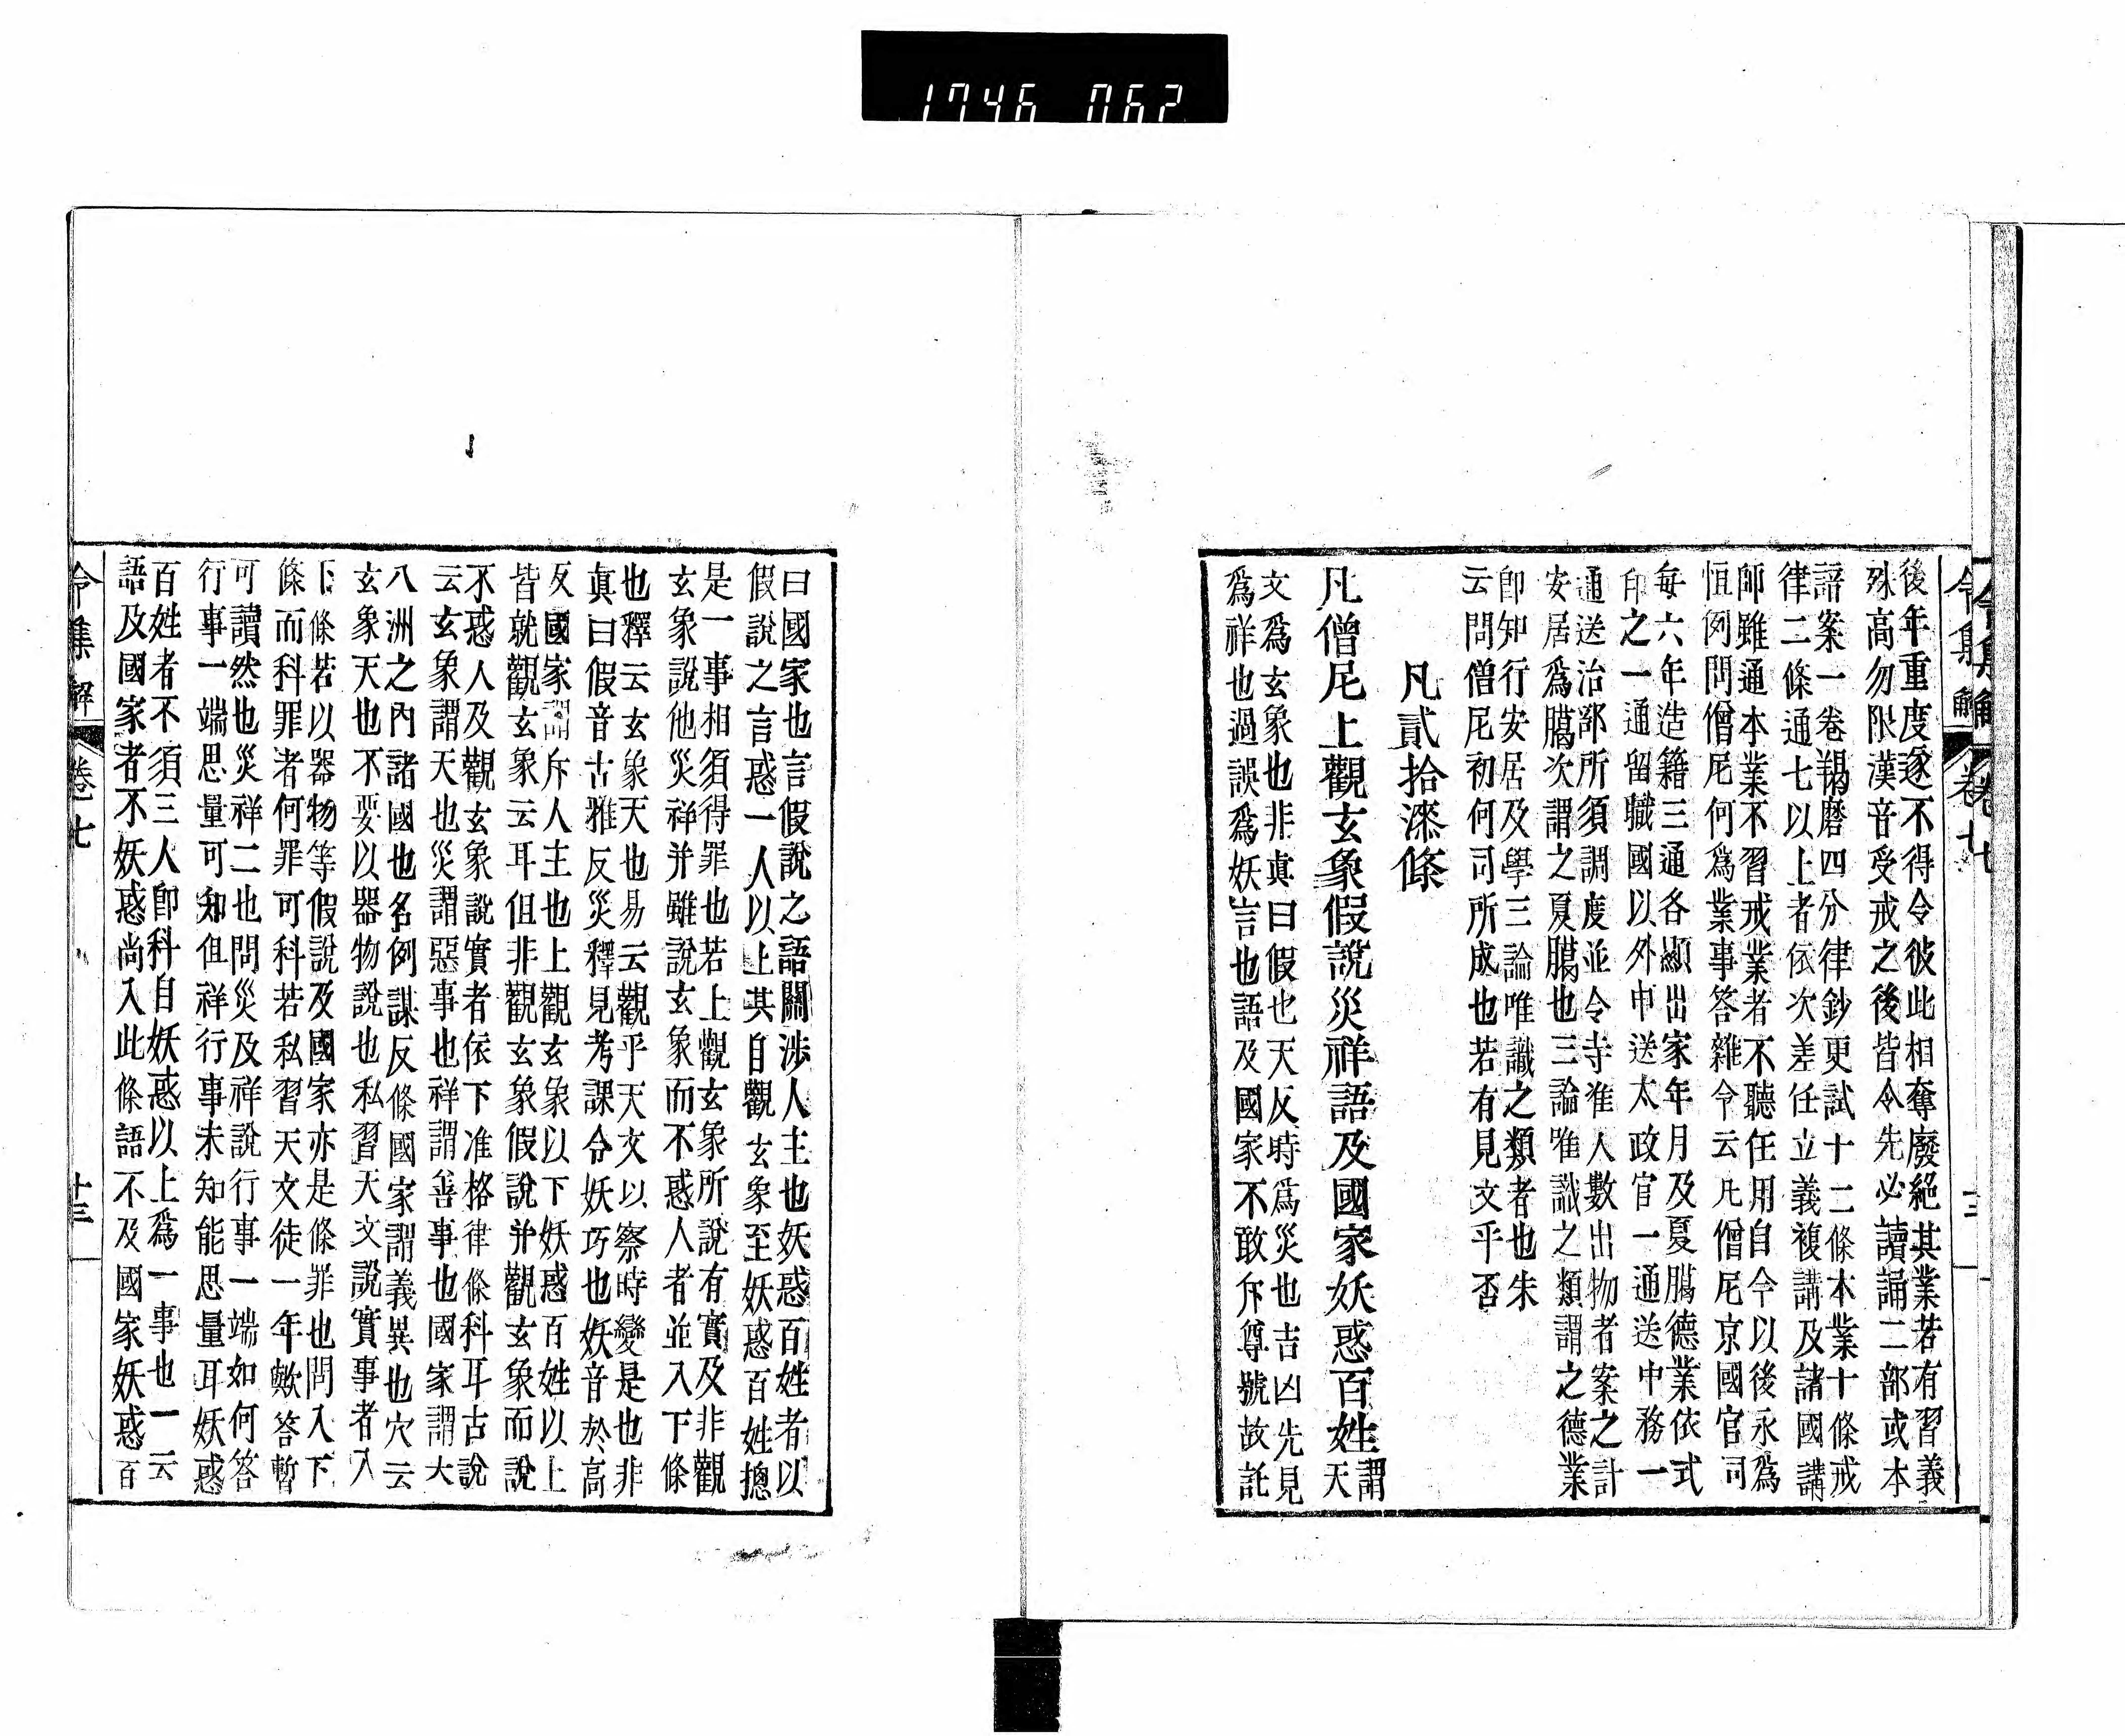 1746 062
令集解 卷七
後年重度逐不得令彼此相奪廢絕其業若有習義
殊高勿限漢音受戒之後皆令先必讀誦二部或本
語案一卷羯磨四分律鈔更試十二條本業十條戒
律二條通七以上者依次差任立義複講及諸國講
師雖通本業不習戒業者不聽任用自今以後永爲
恒例問僧尼何爲業事答雜令云凡僧尼京國官司
每六年造籍三通各顯出家年月及夏﨟德業依式
印之一通留職國以外申送太政官一通送中務一
通送治部所須調度並令寺准人數出物者案之計
安居爲﨟次謂之夏﨟也三論唯識之類謂之德業
卽知行安居及學三論唯識之類者也朱
云問僧尼初何司所成也若有見文乎否
凡貳拾漆條
凡僧尼上觀玄象假說災祥語及國家妖惑百姓
謂天
文爲玄象也非眞曰假也天反時爲災也吉凶先見
爲祥也過誤爲妖言也語及國家不敢斥尊號故託
曰國家也言假說之語關涉人主也妖惑百姓者以
假說之言惑一人以上其自觀玄象至妖惑百姓揔
是一事相須得罪也若上觀玄象所說有實及非觀
玄象說他災祥并雖說玄象而不惑人者並入下條
也釋云玄象天也易云觀乎天文以察時變是也非
眞曰假音古雅反災釋見考課令妖巧也妖音於高
反國家謂斥人主也上觀玄象以下妖惑百姓以上
皆就觀玄象云耳但非觀玄象假說并觀玄象而說
不惑人及觀玄象說實者依下准格律條科耳古說
云玄象謂天也災謂惡事也祥謂善事也國家謂大
八洲之內諸國也名例謀反條國家謂義異也穴云
玄象天也不要以器物說也私習天文說實事者入
下條若以器物等假說及國家亦是條罪也問入下
條而科罪者何罪可科若私習天文徒一年歟答暫
可讀然也災祥二也問災及祥說行事一端如何答
行事一端思量可知但祥行事未知能思量耳妖惑
百姓者不須三人卽科自妖惑以上爲一事也一云
語及國家者不妖惑尚入此條語不及國家妖惑百
令集解 卷七 十三